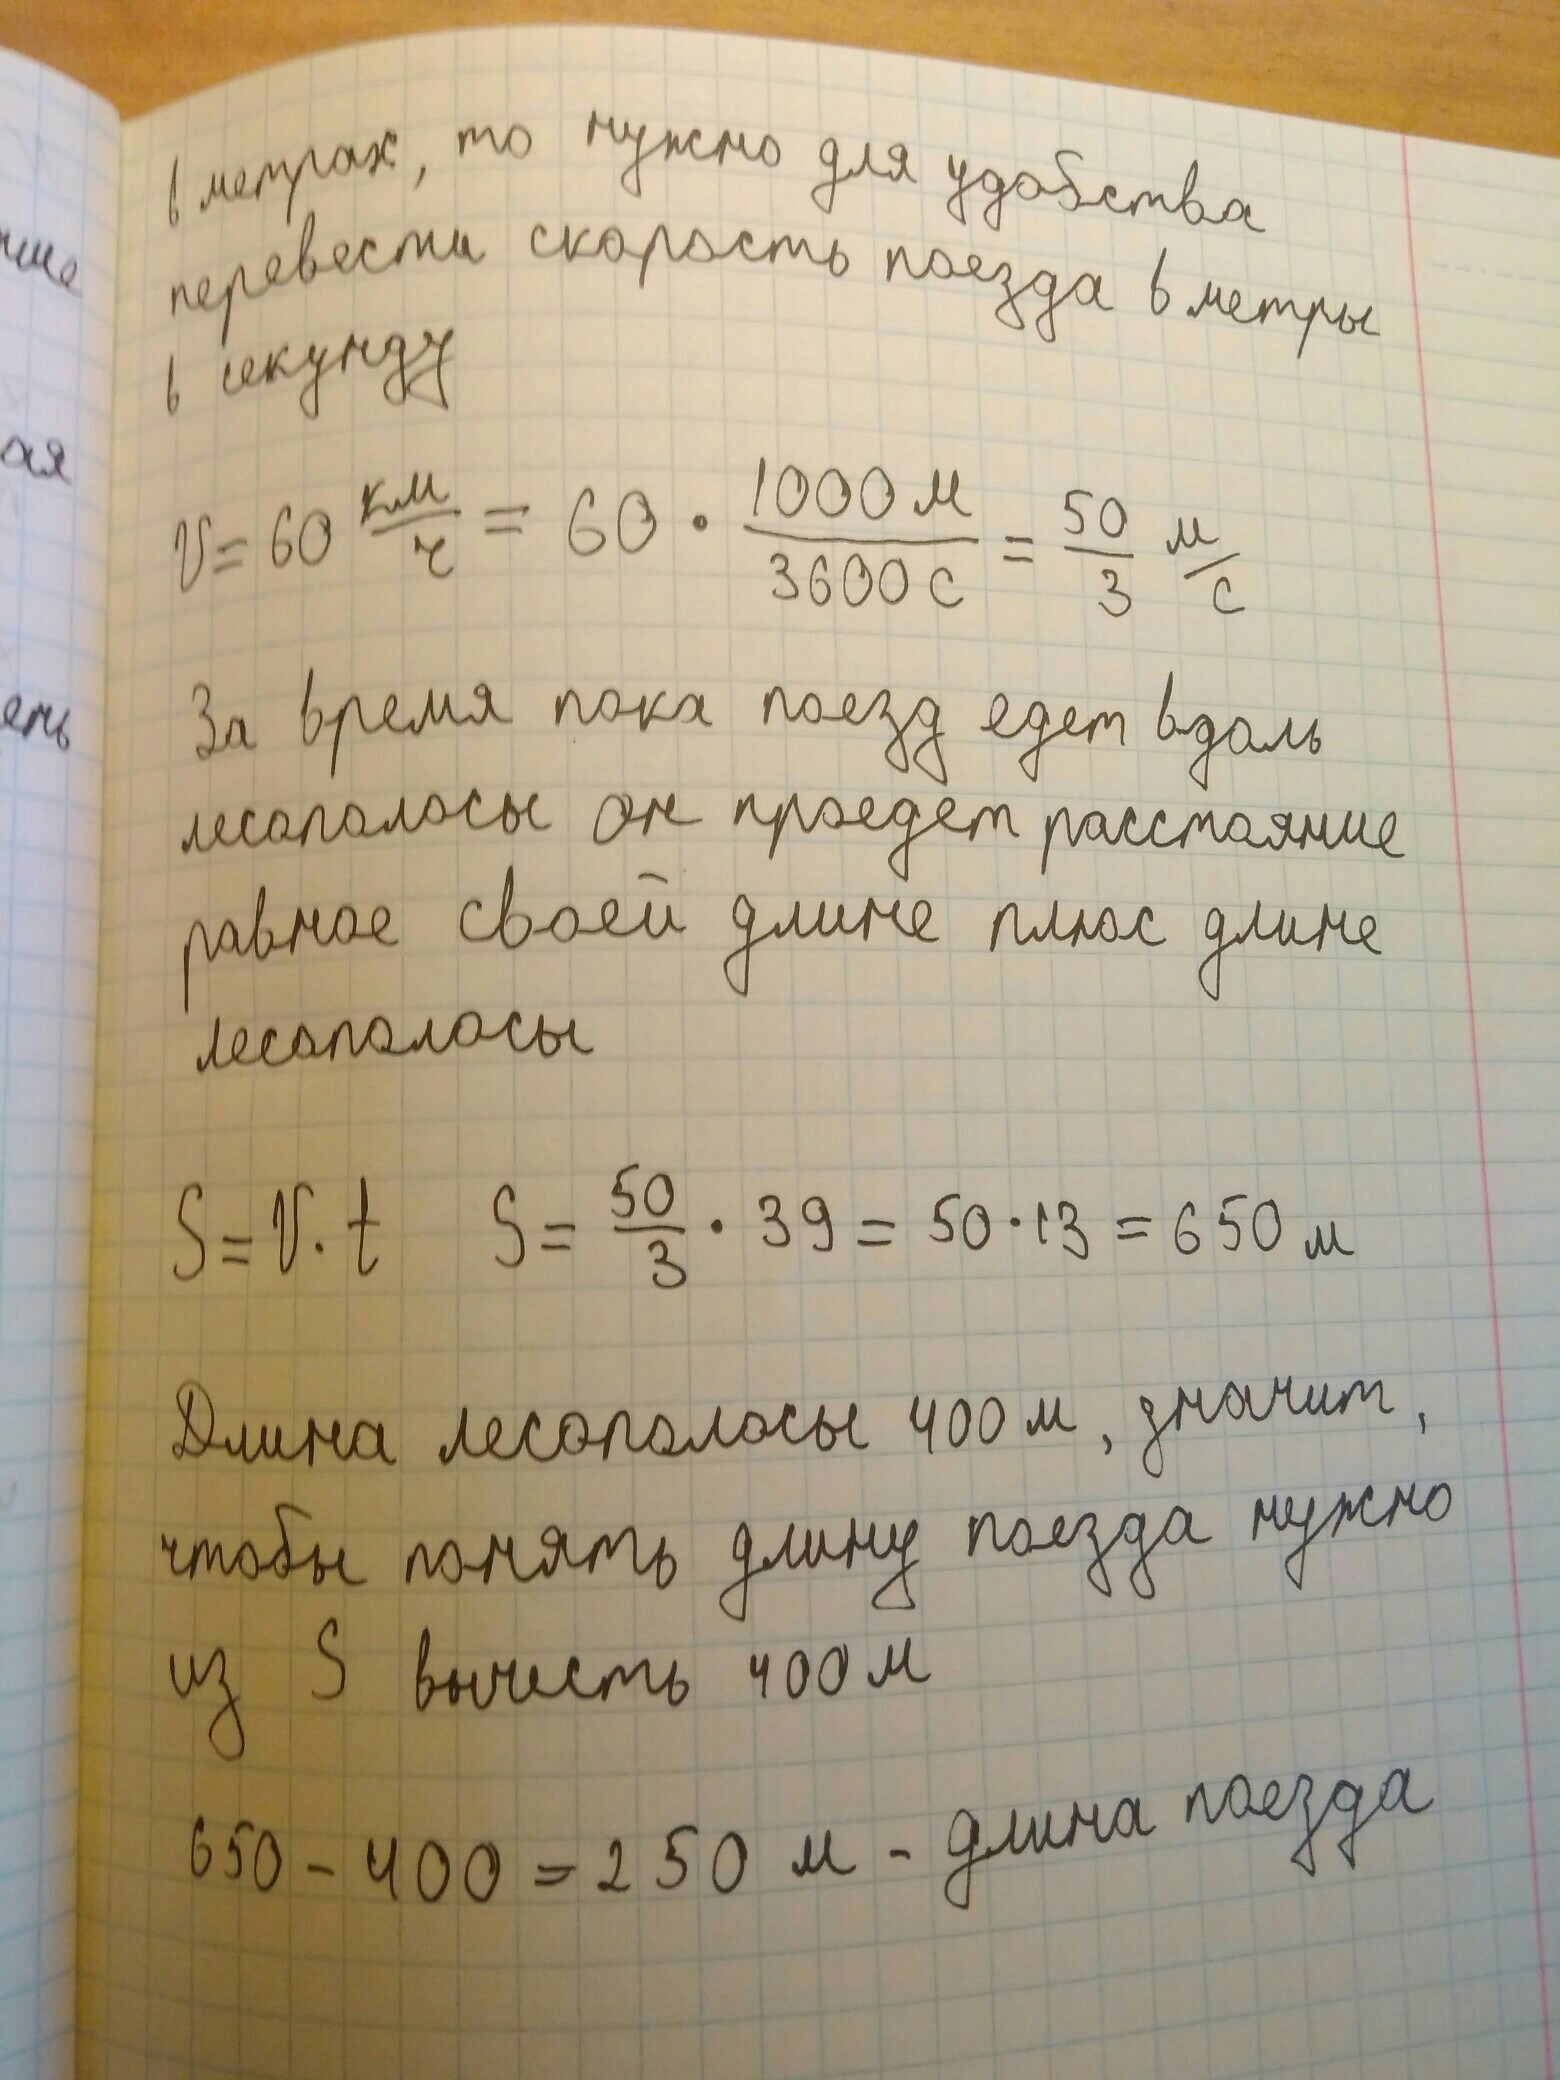 в метрах, то нужно для удобства
перевести скорость поезда в метры
в секунду
V = 60 км/ч = 60 · 1000 м / 3600 с = 50/3 м/с
За время пока поезд едет вдоль
лесополосы он проедет расстояние
равное своей длине плюс длине
лесополосы
S = V · t   S = 50/3 · 39 = 50 · 13 = 650 м
Длина лесополосы 400 м, значит,
чтобы понять длину поезда нужно
из S вычесть 400 м
650 - 400 = 250 м - длина поезда